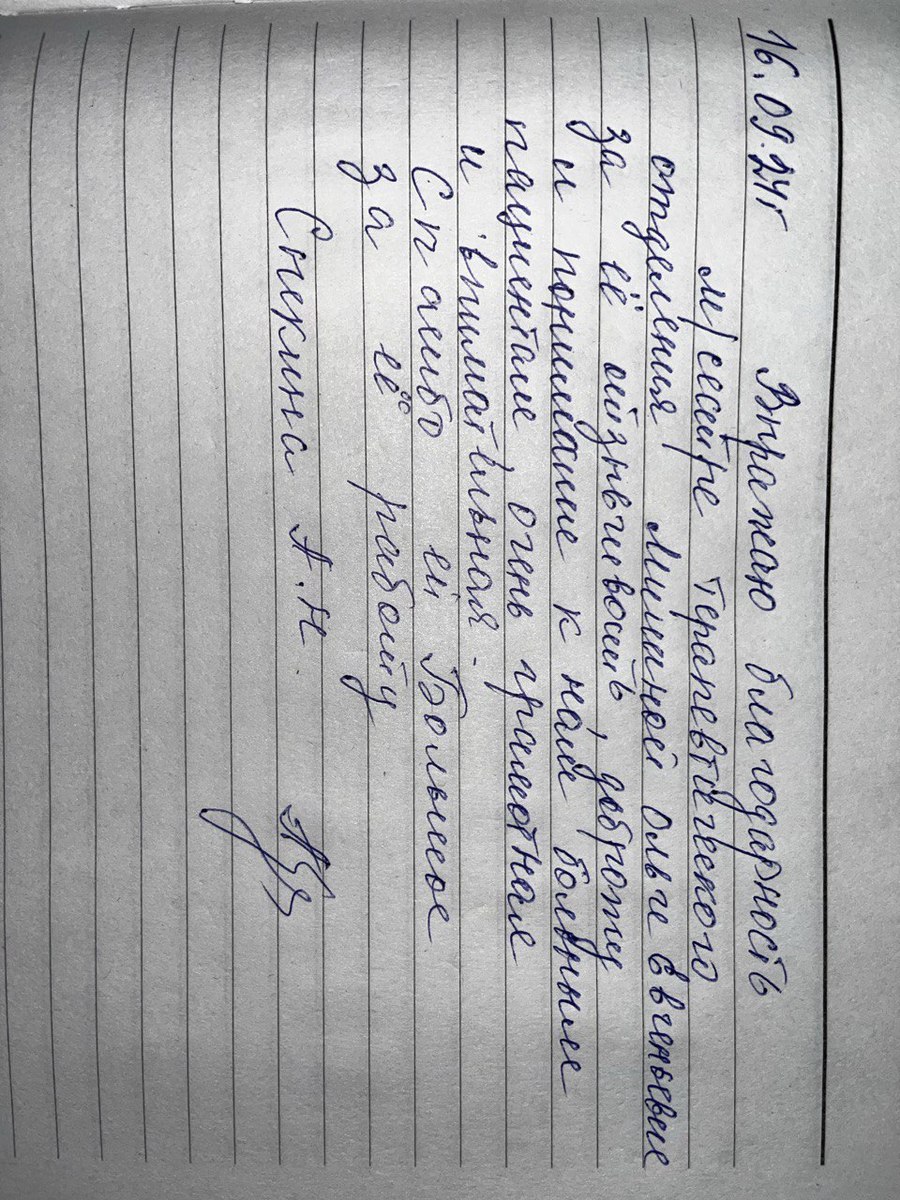 16.09.24г Выражаю благодарность
м/сестре терапевтического
отделения Мининой Ольге Евгеньевне
за её отзывчивость, доброту
и понимание к нам больным
пациентам очень грамотная
и внимательная.
Спасибо ей Большое
за её работу
А.Н